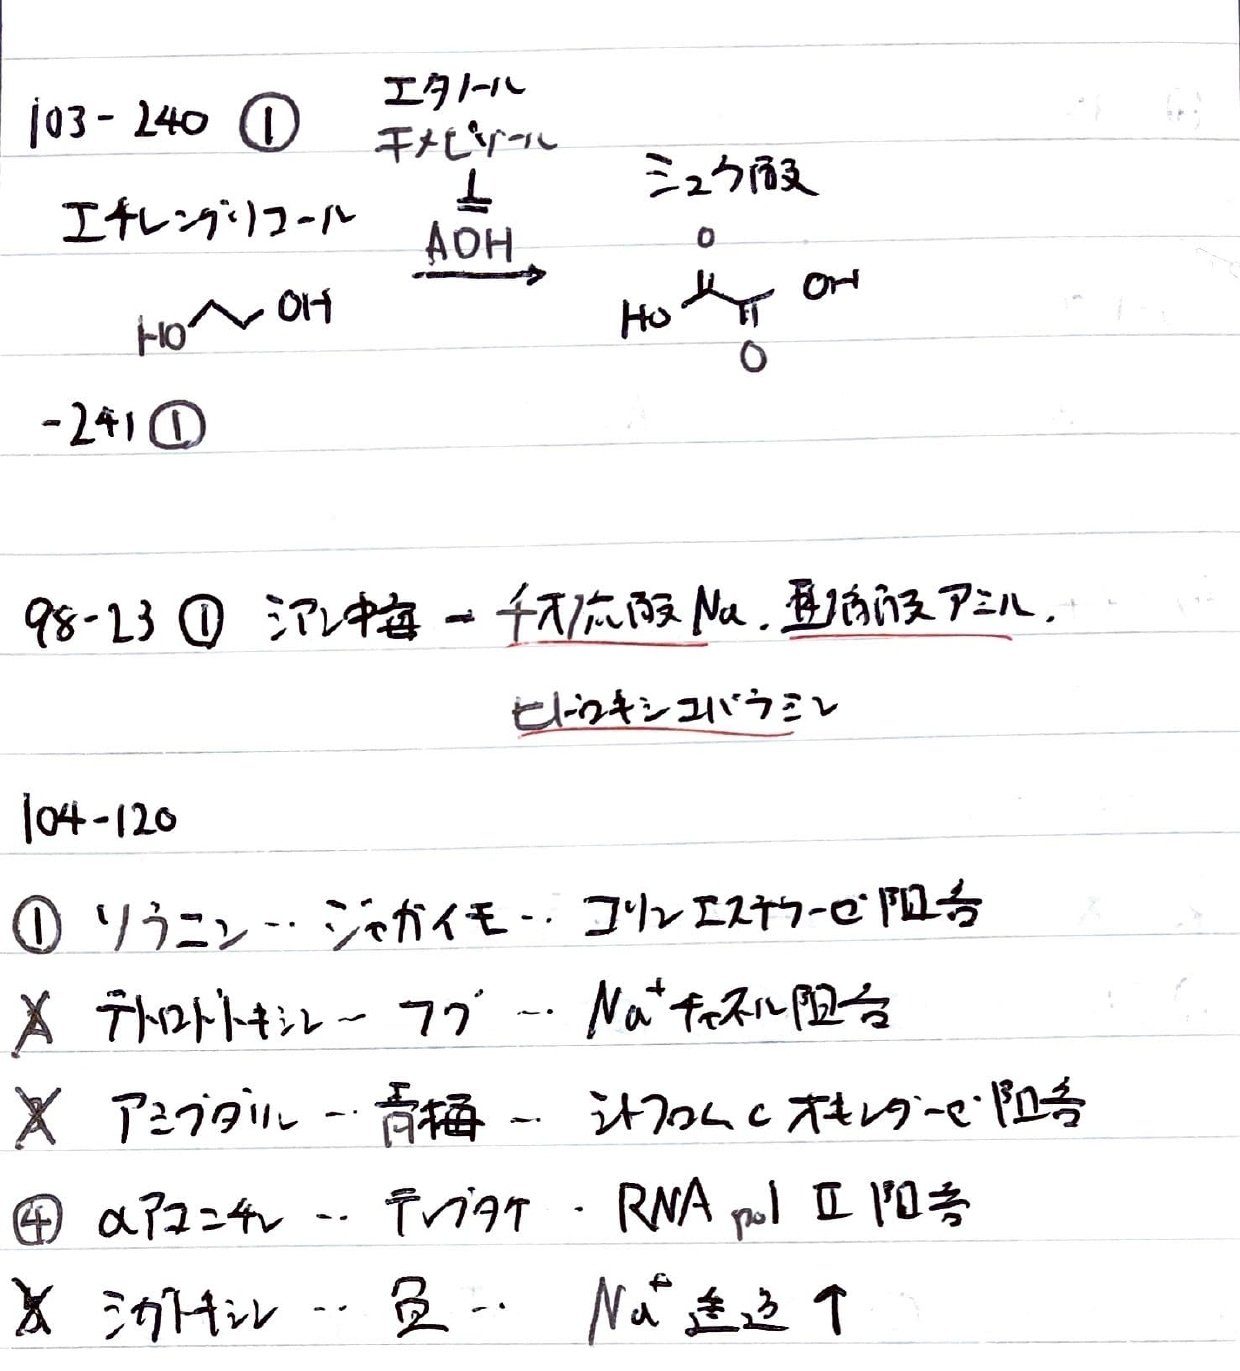 103-240 ①
エタノール
ホメピゾール
⊥
エチレングリコール
ADH
シュウ酸
O
HO OH
HO OH
O
-241 ①
98-23 ① シアン中毒 - チオ硫酸Na. 亜硝酸アミル.
ヒドロキシコバラミン
104-120
① ソラニン… ジャガイモ… コリンエステラーゼ阻害
テトロドトキシン - フグ … Na⁺チャネル阻害
アミグダリン … 青梅 … シトクロムcオキシダーゼ阻害
④ αアマニチン … テングタケ · RNA pol Ⅱ 阻害
シガトキシン … 魚 … Na⁺透過↑